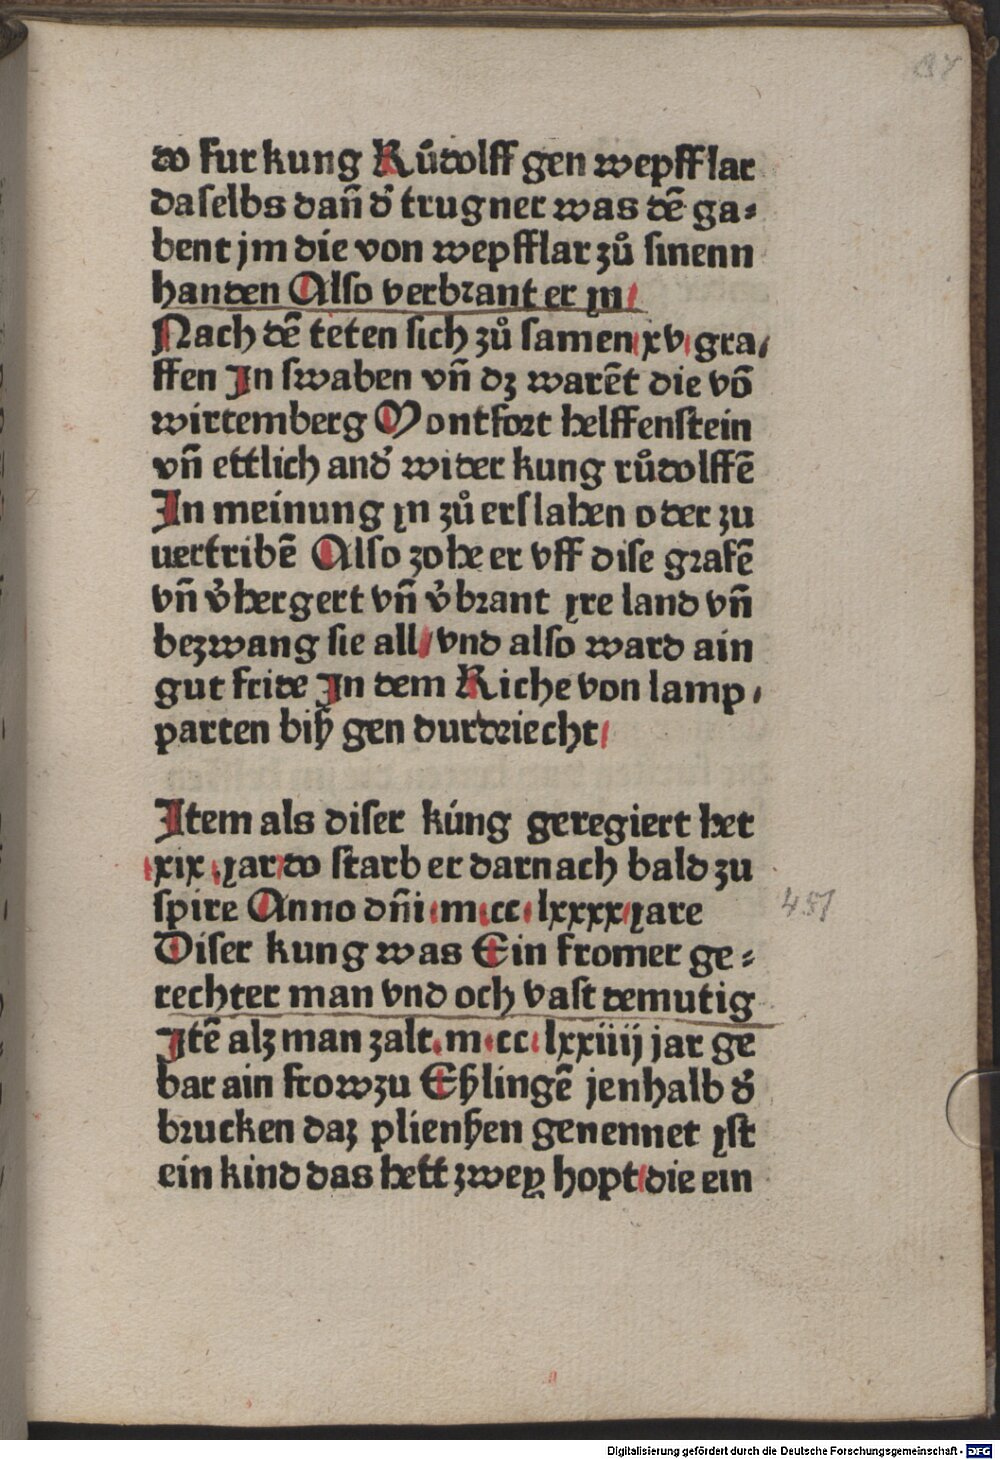 do fur kung Růdolff gen wepfflar
daselbs dañ d᷑ trugner was dē ga⸗
bent jm die von wepfflar zů sinenn
handen Also verbrant er yn/
Nach dē teten sich zů samen xv gra/
ffen In swaben vñ dz warēt die vō
wirtemberg Montfort helffenstein
vñ ettlich and᷑ wider kung růdolffē
In meinung yn zů erslahen oder zu
uertribē Also zohe er vff dise grafē
vñ v᷑hergert vñ v᷑brant yre land vñ
bezwang sie all/ vnd also ward ain
gut fride In dem Riche von lamp/
parten biß gen durdriecht/
Item als diser kúng geregiert het
xix yar do starb er darnach bald zu
spire Anno dñi m cc lxxxx yare
Diser kung was Ein fromer ge⸗
rechter man vnd och vast demutig
Itē alz man zalt m cc lxxiiij jar ge
bar ain frow zu Eßlingē jenhalb d᷑
brucken daz plienßen genennet yst
ein kind das hett zwey hopt/ die ein
451
Digitalisierung gefördert durch die Deutsche Forschungsgemeinschaft - DFG